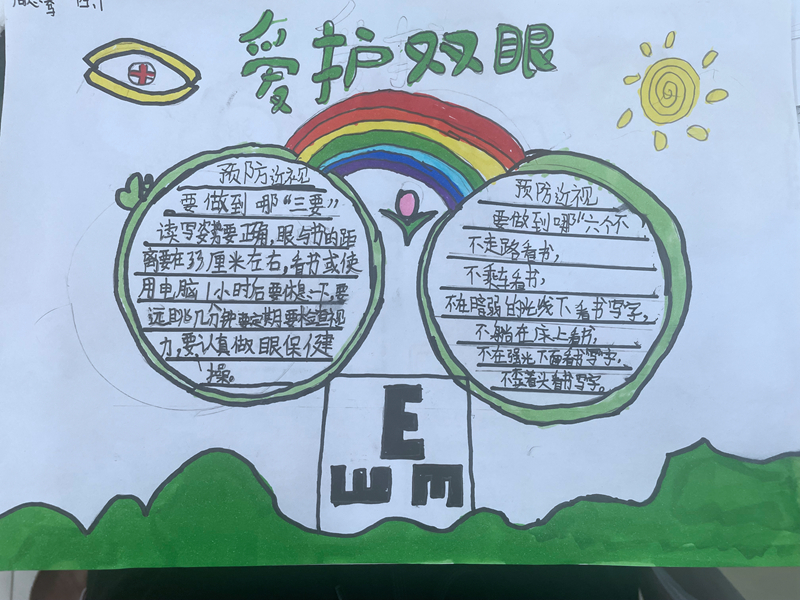 四.1
爱护双眼
预防近视
要做到哪“三要”
读写姿势要正确,眼与书的距
离要在33厘米左右,看书或使
用电脑1小时后要休息一下,要
远眺几分钟要定期要检查视
力,要认真做眼保健
操。
预防近视
要做到哪“六个不
不走路看书,
不乘车看书,
不在暗弱的光线下看书写字,
不躺在床上看书,
不在强光下面看书写字,
不歪着头看书写字。
E
E
E